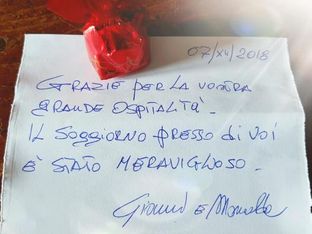 07/XII/2018
GRAZIE PER LA VOSTRA
GRANDE OSPITALITÀ.
IL SOGGIORNO PRESSO DI VOI
È STATO MERAVIGLIOSO.
Gianni E